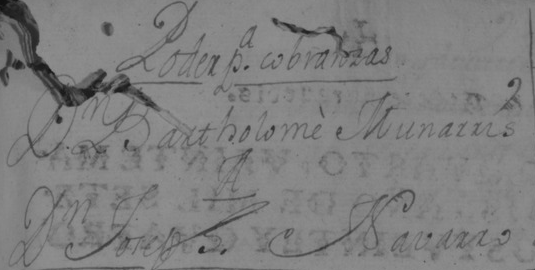 Poder pª. cobranzas
Dn. Bartholomè Munarris
A
Dn Joseph. Navarro